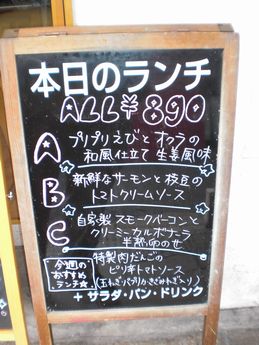 本日のランチ
ALL ¥890
A プリプリえびとオクラの
和風仕立て 生姜風味
B 新鮮なサーモンと枝豆の
トマトクリームソース
C 自家製スモークベーコンと
クリーミーカルボナーラ
半熟卵のせ
今週の
おすすめ
ランチ☆
特製肉だんごの
ピリ辛トマトソース
(玉ねぎ・パプリカ・きざみねぎ入り)
+ サラダ・パン・ドリンク